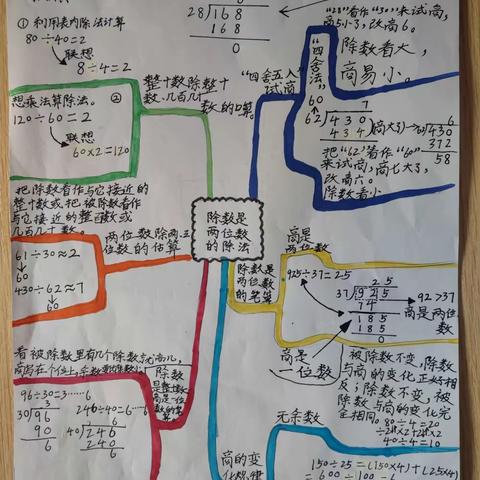 ① 利用表内除法计算
80÷40=2
联想
8÷4=2
想乘法算除法。 ②
120÷60=2
联想
60×2=120
整十数除整十
数、几百几十
数的口算。
28 168
168
0
"28"看作"30"来试商,
商5小3,改商6。
除数看大,
商易小。
"四舍五入"
试商
"四舍"法,
60
7
62 430
434 (商大了)
6
430
372
58
把"62"看作"60"
来试商,商七大了,
改商六。
除数看小
把除数看作与它接近的
整十数或把被除数看作
与它接近的整百数或
几百几十数。
两位数除两三
位数的估算
61÷30≈2
60
430÷62≈7
60
除数是
两位数
的除法
除数是
两位数
的笔算
商是
两位数
925÷37=25
25
37 925
74
185
185
0
92>37
商是两位
数
商是
一位数
看被除数里有几个除数就商几,
商写在个位上,余数要比除数小
96÷30=3……6
3
30 96
90
6
246÷40=6……6
6
40 246
240
6
除数
是整十数
商是一位
数的笔算
被除数不变,除数
与商的变化正好相
反;除数不变,被
除数与商的变化完
全相同。
80÷4=20
÷2 ×2
40÷4=10
商的变
化规律
无余数
150÷25=(150×4)÷(25×4)
=600÷100=6